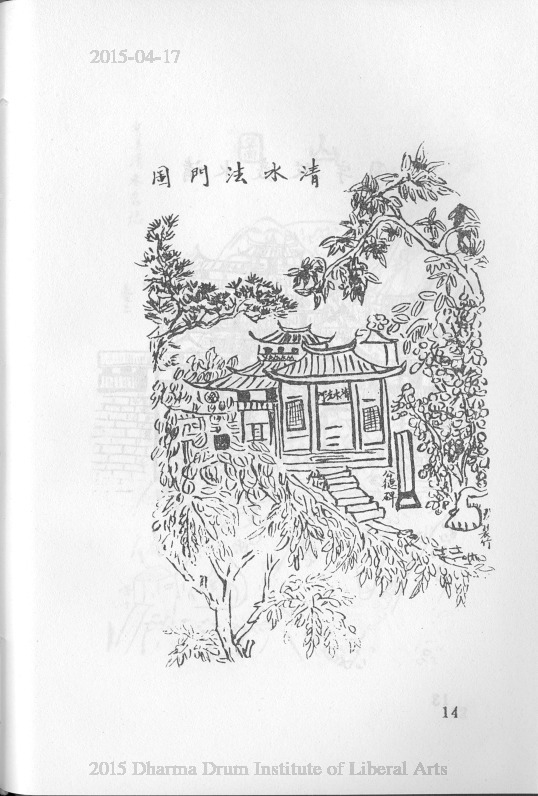 2015-04-17
清水法門圖
清水法門
公德碑
14
2015 Dharma Drum Institute of Liberal Arts